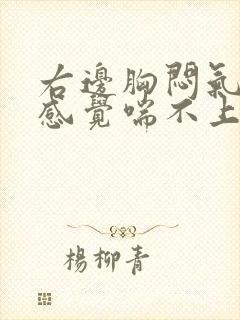 右邊胸悶氣
感覺喘不上
楊柳青